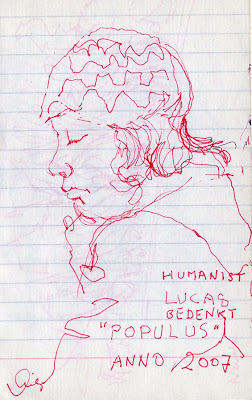 HUMANIST
LUCAS
BEDENKT
"POPULUS"
ANNO 2007